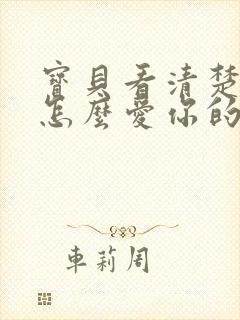 寶貝看清楚
怎麼愛你的
車莉周